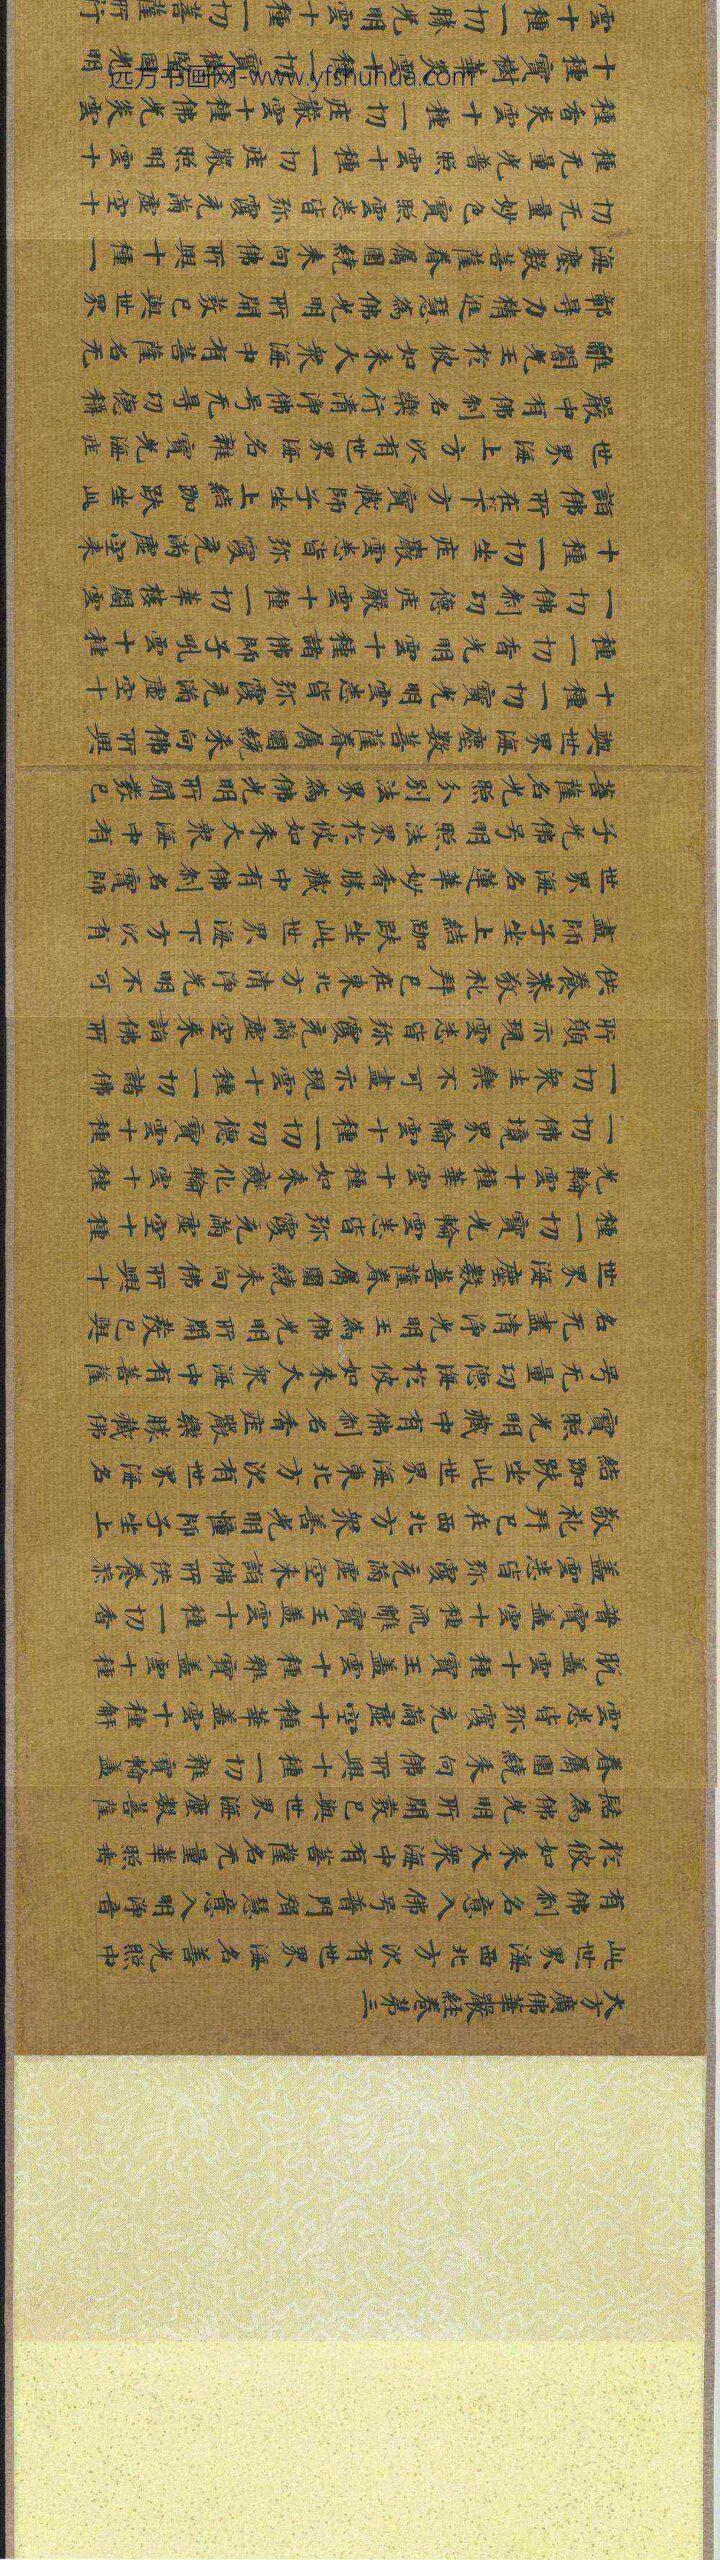 大方廣佛華嚴経卷第三
此世界海西北方次有世界海名善光照中
有佛刹名意入佛号普門智慧意入明淨音
於彼如来大衆海中有菩薩名无量華照垂
髻為佛光明所開教已與世界海塵數菩薩
眷屬圍繞来向佛所興十種一切雜寶輪蓋
雲悉皆弥覆充滿虛空十種華蓋雲十種解
脫蓋雲十種寶王蓋雲十種雜寶蓋雲十種
普寶蓋雲十種流離寶王蓋雲十種一切香
蓋雲悉皆弥覆充滿虛空来詣佛所供養恭
敬礼拜已在西北方衆善光明幢師子坐上
結跏趺坐此世界海東北方次有世界海名
寶照光明藏中有佛刹名香庄嚴樂勝藏佛
号无量功德海於彼如来大衆海中有菩薩
名无盡清淨光明王為佛光明所開教已與
世界海塵數菩薩眷屬圍繞来向佛所興十
種一切寶光輪雲悉皆弥覆充滿虛空十種
光輪雲十種華雲十種如来變化輪雲十種
一切佛境界輪雲十種一切功德寶雲十種
一切衆生樂不可盡示現雲十種一切諸佛
所願示現雲悉皆弥覆充滿虛空来詣佛所
供養恭敬礼拜已在東北方清淨光明不可
盡師子坐上結跏趺坐此世界海下方次有
世界海名蓮華妙香勝藏中有佛刹名寶師
子光佛号明照法界於彼如来大衆海中有
菩薩名光照分別法界為佛光明所開發已
與世界海塵數菩薩眷屬圍繞来向佛所興
十種一切寶光明雲悉皆弥覆充滿虛空十
種一切香光明雲十種諸佛師子吼雲十種
一切佛刹功德庄嚴雲十種一切華樓閣雲
十種一切坐庄嚴雲悉皆弥覆充滿虛空来
詣佛所在下方寶藏師子坐上結跏趺坐此
世界海上方次有世界海名雜寶光海庄
嚴中有佛刹名樂行清淨佛号无㝵功德稱
離闇光王於彼如来大衆海中有菩薩名无
鄣㝵力精進慧為佛光明所開發已與世界
海塵數菩薩眷屬圍繞来向佛所興十種一
切无量妙色寶照雲悉皆弥覆充滿虛空十
種无量光普照雲十種一切庄嚴照明雲十
種香炎雲十種一切庄嚴雲十種佛光炎雲
十種寶樹華炎雲十種一切寶光明
雲十種一切勝光明雲十種一切菩薩行
远方书画网-www.yfshuhua.com